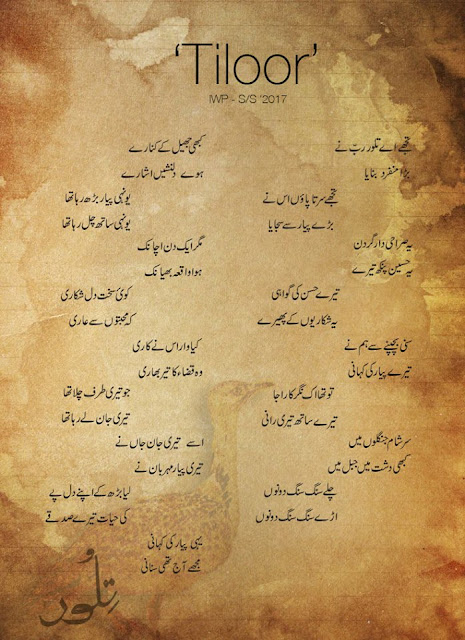 'Tiloor'
IWP - S/S '2017
تجھے اے تلور ربّ نے
بڑا منفرد بنایا
تجھے سرتا پاؤں اس نے
بڑے پیار سے سجایا
یہ صراحی دار گردن
یہ حسین پنکھ تیرے
تیرے حسن کی گواہی
یہ شکاریوں کے پھیرے
سنی بچپنے سے ہم نے
تیرے پیار کی کہانی
تو تھا اک نگر کا راجا
تیرے ساتھ تیری رانی
سرشام جنگلوں میں
کبھی دشت میں جبل میں
چلے سنگ سنگ دونوں
اڑے سنگ سنگ دونوں
کبھی جھیل کے کنارے
ہوے دلنشیں اشارے
یونہی پیار بڑھ رہا تھا
یونہی ساتھ چل رہا تھا
مگر ایک دن اچانک
ہوا واقعہ بھیانک
کوئ سخت دل شکاری
کہ محبتوں سے عاری
کیا وار اس نے کاری
وہ قضاء کا تیر بھاری
جو تیری طرف چلا تھا
تیری جان لے رہا تھا
اسے تیری جان جاں نے
تیری پیار مہرباں نے
لیا بڑھ کے اپنے دل پے
کی حیات تیرے صدقے
یہی پیار کی کہانی
مجھے آج تھی سنانی
تِلُور